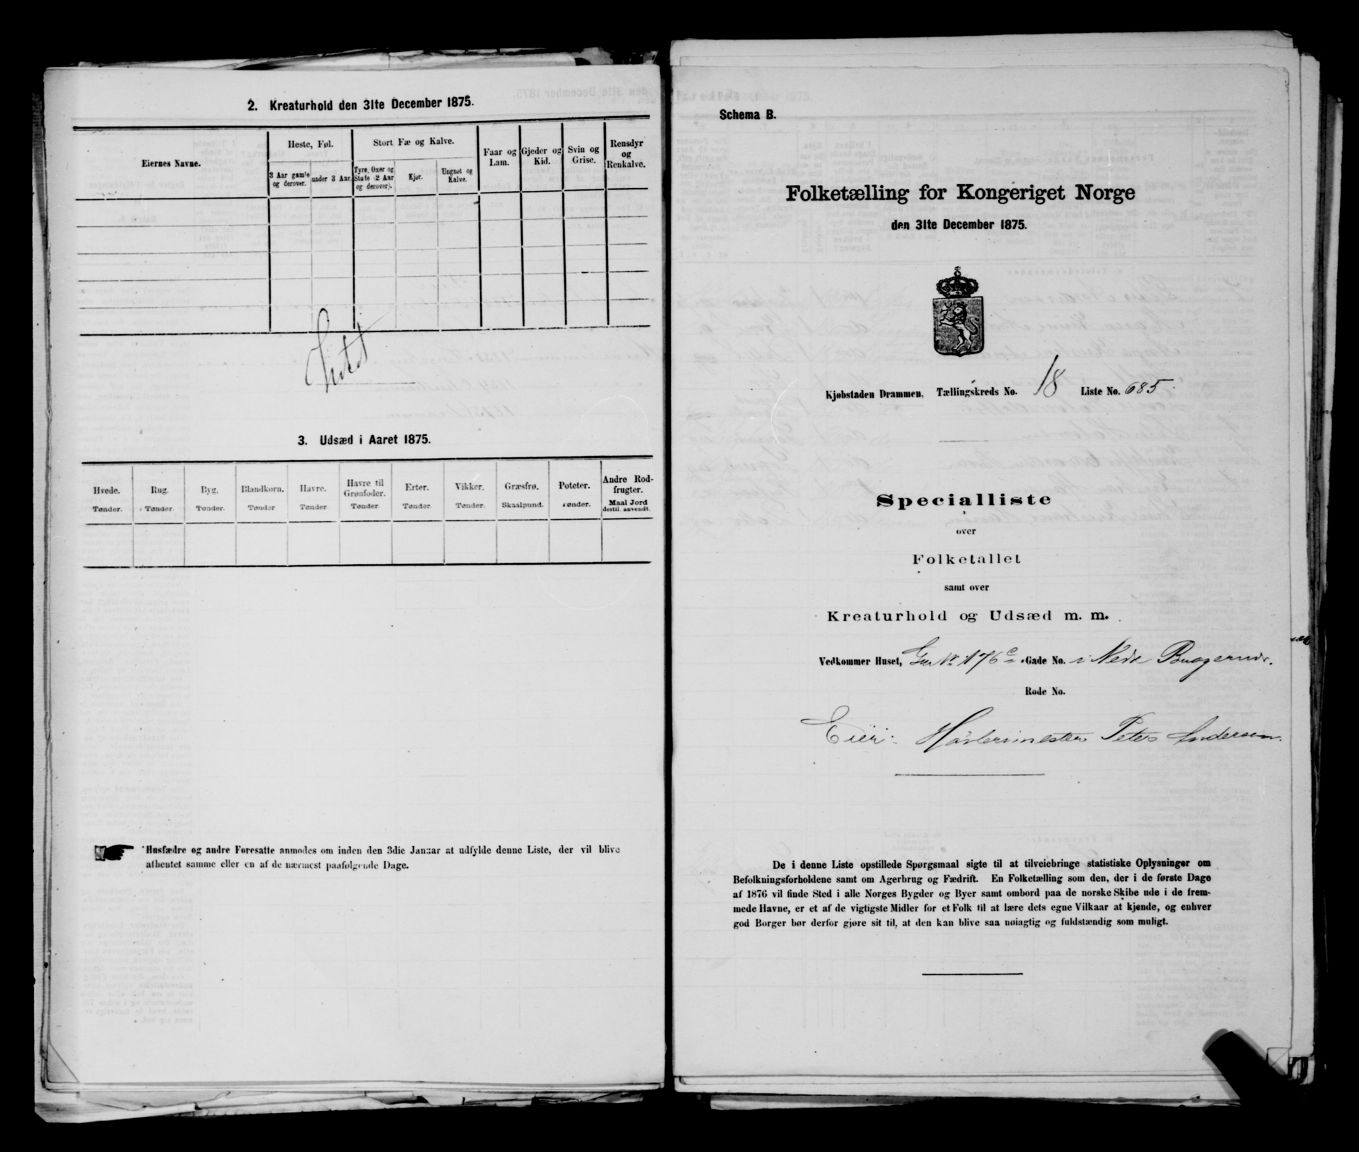 2. Kreaturhold den 31te December 1875.
Eiernes Navne.
Heste, Føl.
Stort Fæ og Kalve.
Faar og Lam.
Gjeder og Kid.
Svin og Grise.
Rensdyr og Renkalve.
3 Aar gamle og derover.
under 3 Aar.
Tyre, Oxer og Stude (2 Aar og derover).
Kjør.
Ungnøt og Kalve.
3. Udsæd i Aaret 1875.
Hvede. Rug. Byg. Blandkorn. Havre. Havre til Grønfoder. Erter. Vikker. Græsfrø. Poteter. Andre Rodfrugter.
Tønder. Tønder. Tønder. Tønder Tønder. Tønder. Tønder. Tønder. Skaalpund. Tønder. Maal Jord destil anvendt.
Husfædre og andre Foresatte anmodes om inden den 3die Januar at udfylde denne Liste, der vil blive
afhentet samme eller en af de nærmest paafølgende Dage.
Schema B.
Folketælling for Kongeriget Norge
den 31te December 1875.
Kjøbstaden Drammen. Tællingskreds No. 18 Liste No. 685.
Specialliste
over
Folketallet
samt over
Kreaturhold og Udsæd m. m.
Vedkommer Huset, 176c Gade No. i Nedr Bragernæs.
Rode No.
Eier: Høvlerimester Peter Andersen.
De i denne Liste opstillede Spørgsmaal sigte til at tilveiebringe statistiske Oplysninger om
Befolkningsforholdene samt om Agerbrug og Fædrift. En Folketælling som den, der i de første Dage
af 1876 vil finde Sted i alle Norges Bygder og Byer samt ombord paa de norske Skibe ude i de frem-
mede Havne, er et af de vigtigste Midler for et Folk til at lære dets egne Vilkaar at kjende, og enhver
god Borger bør derfor gjøre sit til, at den kan blive saa nøiagtig og fuldstændig som muligt.